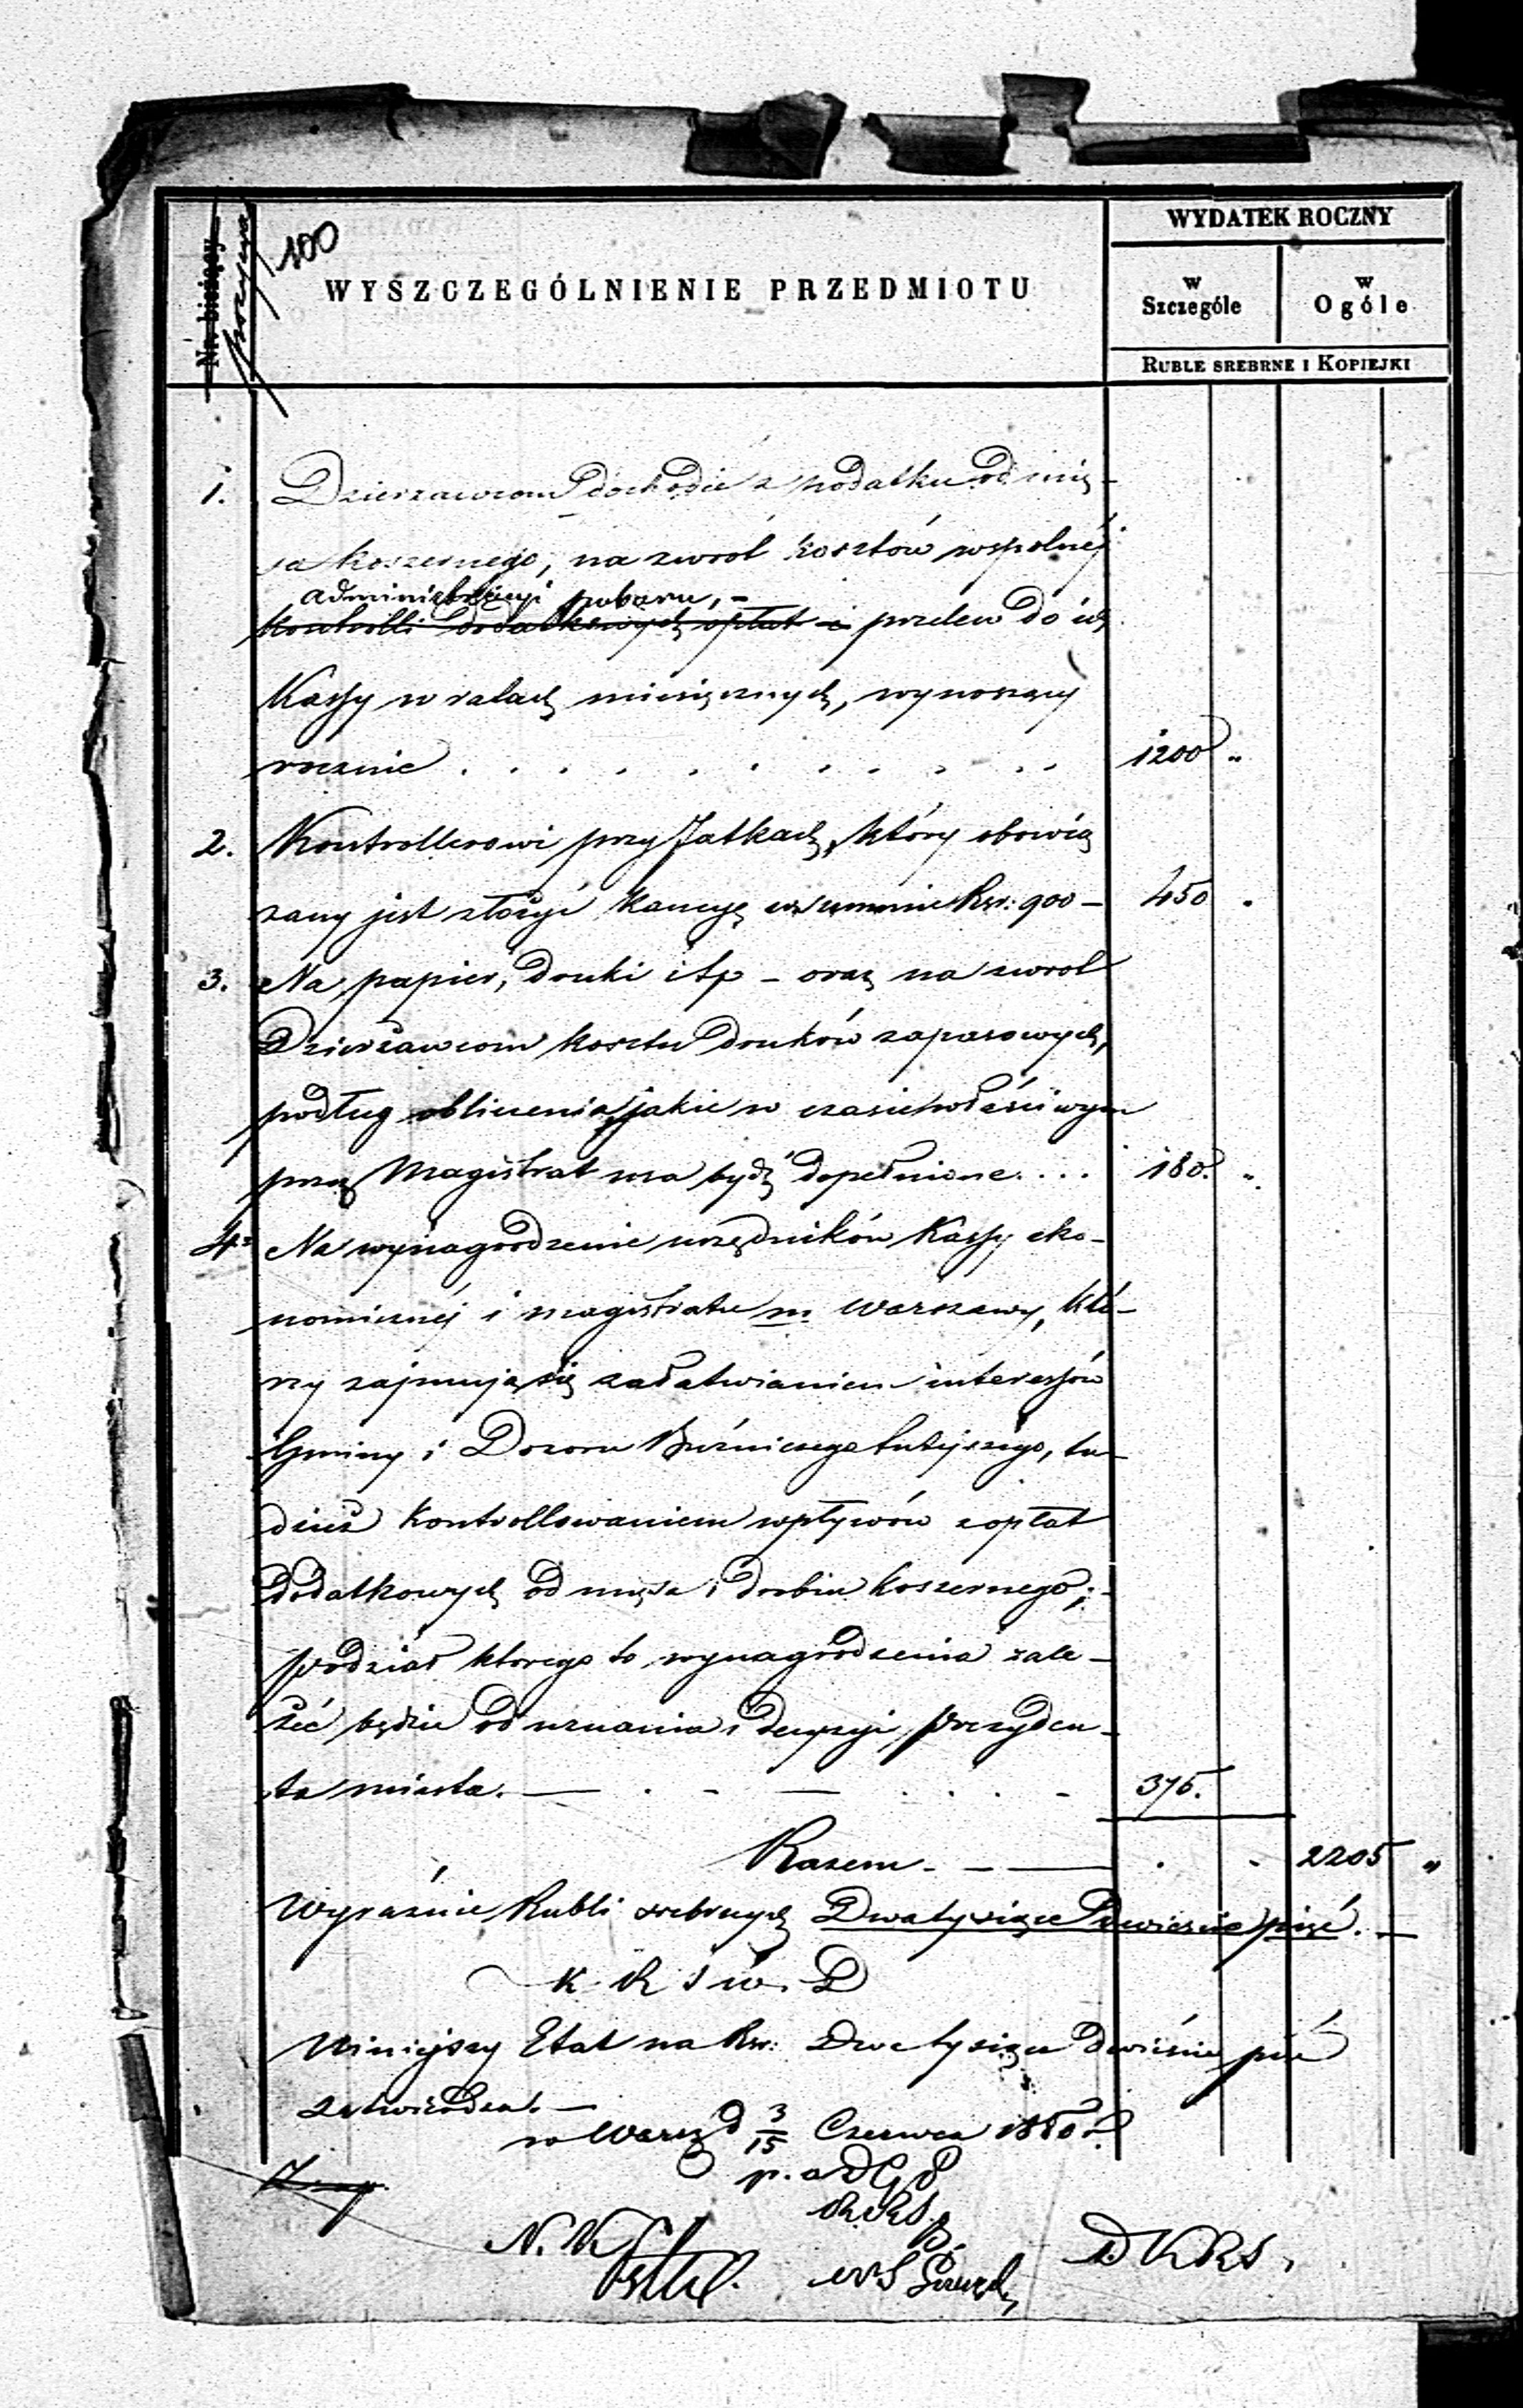 Na. bieżący
pozycya
100
WYSZCZEGÓLNIENIE PRZEDMIOTU
WYDATEK ROCZNY
w Szczególe
w Ogóle
RUBLE SREBRNE I KOPIEJKI
1. Dzierzawcom dochodu z podatku od mię-
sa koszernego, na zwrot kosztów wspolnéj
administracyi poboru, -
kontrolli dodatkowych opłat i przelew do
Kassy w ratach miesięcznych, wynoszący
rocznie . . . . . . . . . . . 1200 "
2. Kontrollerowi przy Jatkach, który obowią
zany jest złożyć Kaucyę w summie Rsr: 900 – 450 "
3. Na papier, druki itp – oraz na zwrot
Dzierżawcom kosztu druków zaparowych,
podług obliczenia, jakie w czasie właściwym
przez Magistrat ma bydź dopełnione. . . . 180. "
4. Na wynagrodzenie urzędników Kassy eko-
nomicznéj i magistratu m. Warszawy, któ-
rzy zajmują się załatwianiem interessów
Gminy i Dozoru Bóźniczego tutejszego, tu-
dzież kontrollowaniem wpływów z opłat
dodatkowych od mięsa i drobiu koszernego;-
podział ktorego to wynagrodzenia zale-
żeć będzie od uznania i decyzyi Prezyden-
ta miasta. — . - — . . . - 375.
Razem - — — . . 2205 "
Wyraźnie Rubli srebrnych Dwa tysiące Dwieście pięć. —
K R S W. D
Niniejszy Etat na Rsr: Dwa tysiące dwieście pięć
zatwierdza. —
w Warsz d 3/15 Czerwca 1860 r.
p. o D G P
N. K
D K R S.